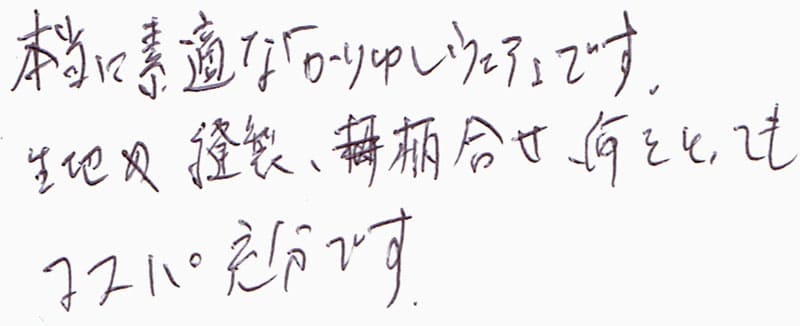 本当に素適な「かりゆしウェア」です。
生地や縫製、柄合せ、何をとっても
コスパ充分です。